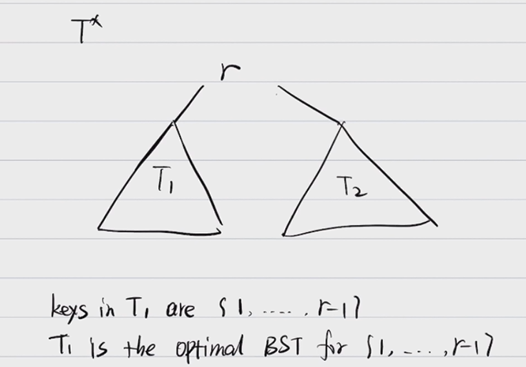 T*
r
T₁ T₂
keys in T₁ are {1, ....., r-1}
T₁ is the optimal BST for {1, ..., r-1}